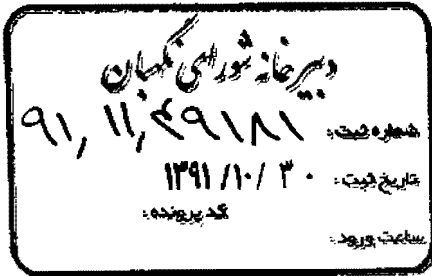 دبیرخانه شورای نگهبان
شماره ثبت: ۹۱/۱۱/۴۹۱۸۱
تاریخ ثبت: ۱۳۹۱/۱۰/۳۰
کد پرونده:
ساعت ورود: